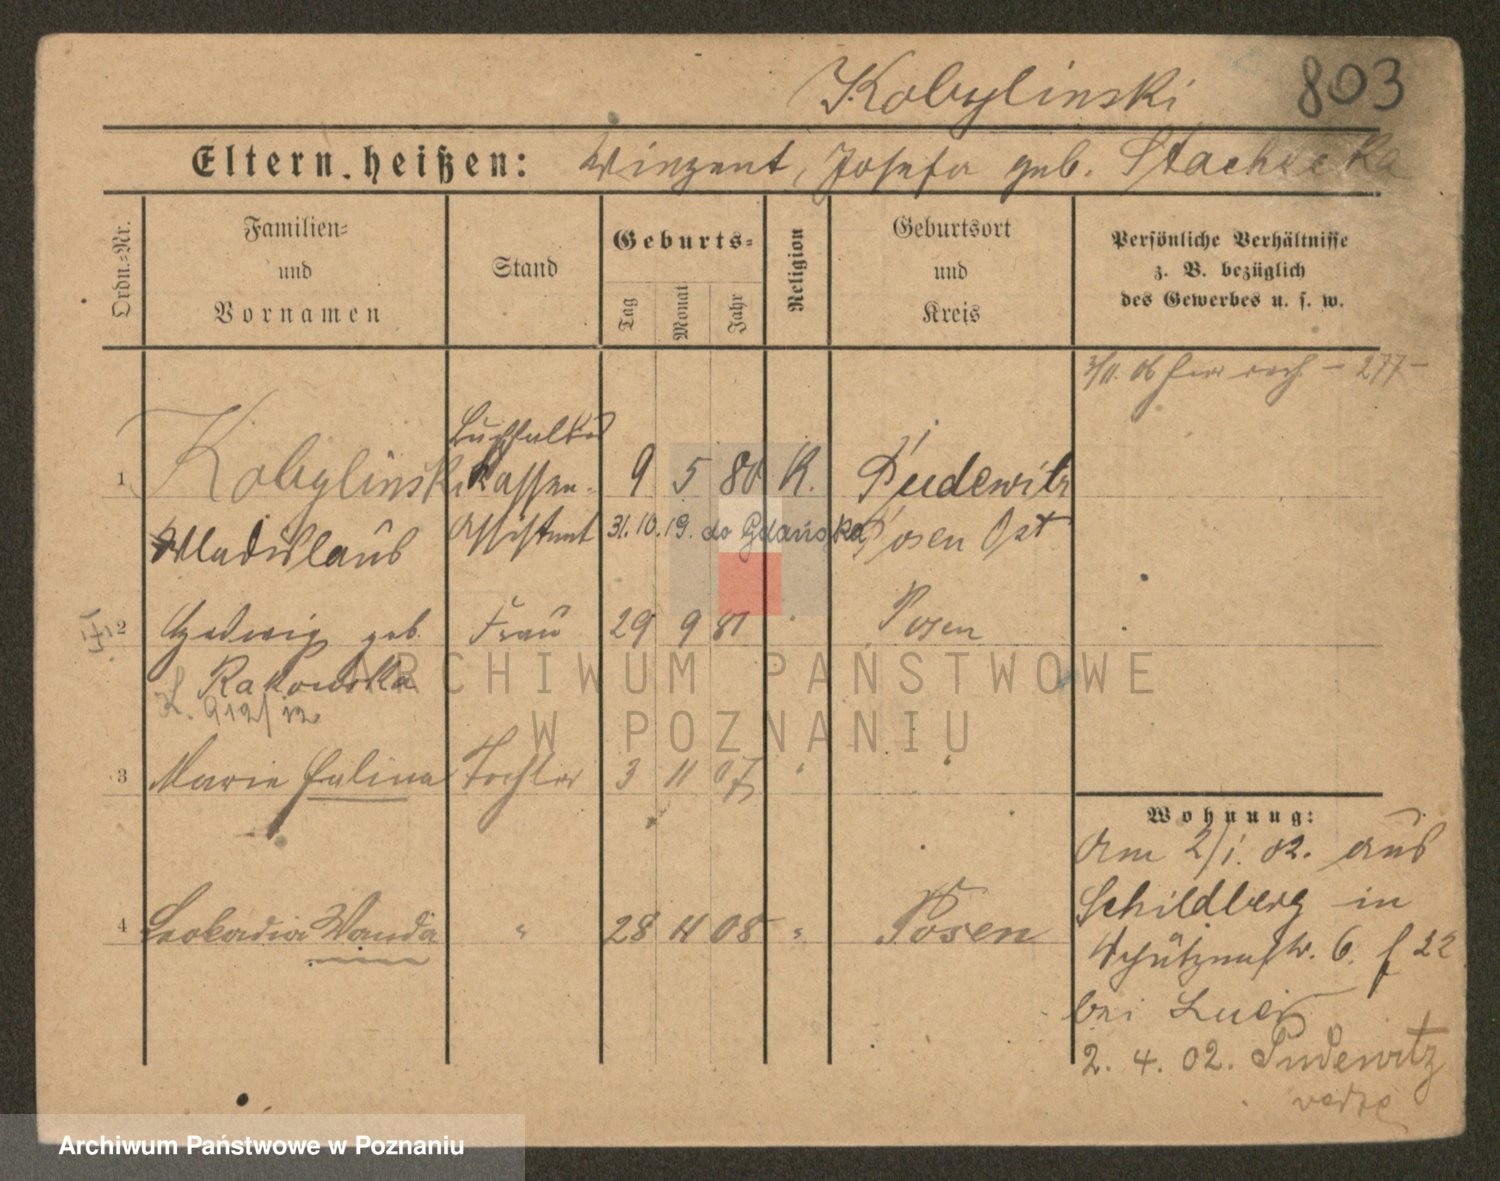 Kobylinski 803
Eltern heißen: Winzent, Josefa geb.
Ordn.-Nr.
Familien-
und
Vornamen
Stand
Geburts-
Tag
Monat
Jahr
Religion
Geburtsort
und
Kreis
Persönliche Verhältnisse
z. B. bezüglich
des Gewerbes u. s. w.
277
Buchhalter
1 Kobylinski Kassen- 9 5 80 K. Pudewitz
Wladislaus Assistent 31.10.19. do Gdańska Posen Ost
2 Hedwig geb. Frau 29 9 81 " Posen
Rakowska
912/12
3 Marie Halina Tochter 3 11 07 " "
4 Leokadia Wanda " 28 11 08 " Posen
Wohnung:
Am 2/1. 02. aus
Schildberg in
Schützenstr. 6.
bei
2. 4. 02. Pudewitz
ARCHIWUM PAŃSTWOWE
W POZNANIU
Archiwum Państwowe w Poznaniu